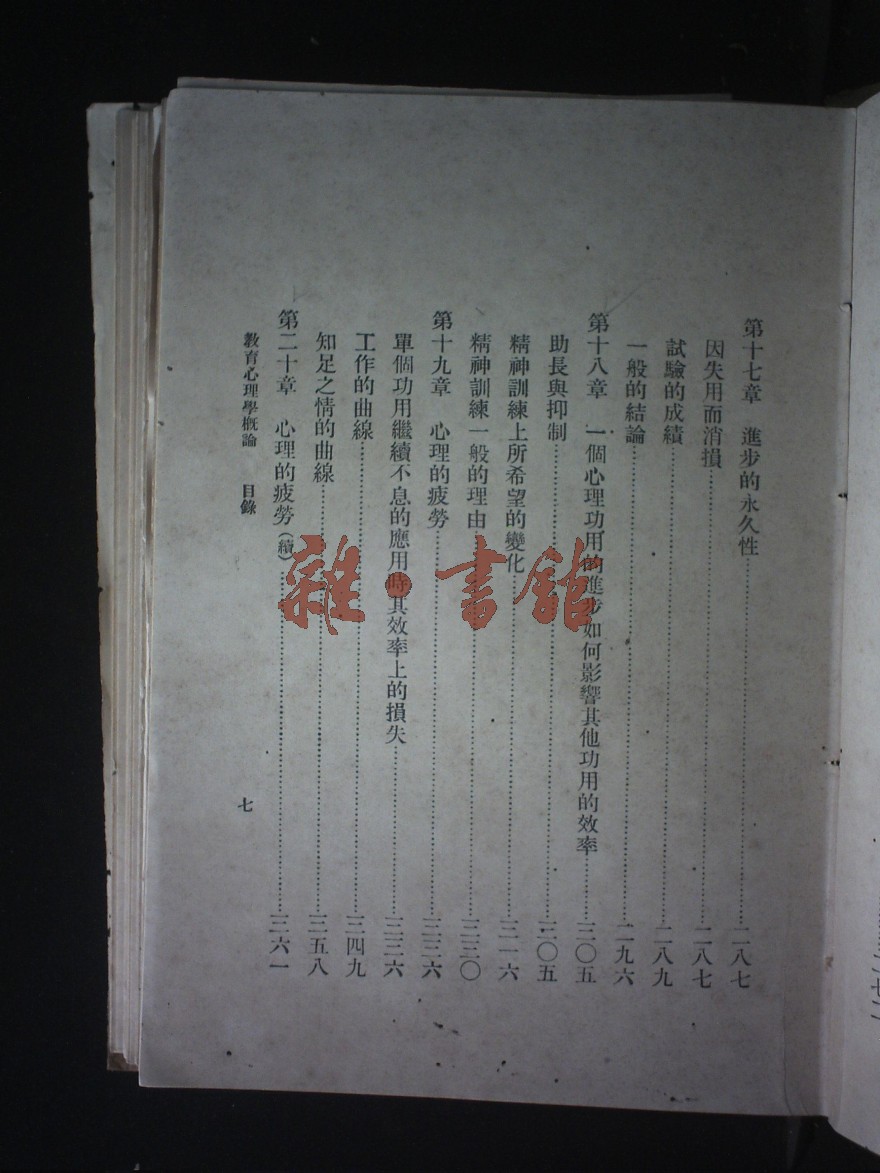 第十七章 進步的永久性……二八七
因失用而消損……二八七
試驗的成績……二八九
一般的結論……二九六
第十八章 一個心理功用的進步如何影響其他功用的效率……三〇五
助長與抑制……三〇五
精神訓練上所希望的變化……三一六
精神訓練一般的理由……三三〇
第十九章 心理的疲勞……三三六
單個功用繼續不息的應用時其效率上的損失……三三六
工作的曲線……三四九
知足之情的曲線……三五八
第二十章 心理的疲勞(續)……三六一
教育心理學概論 目錄 七
雜·書館